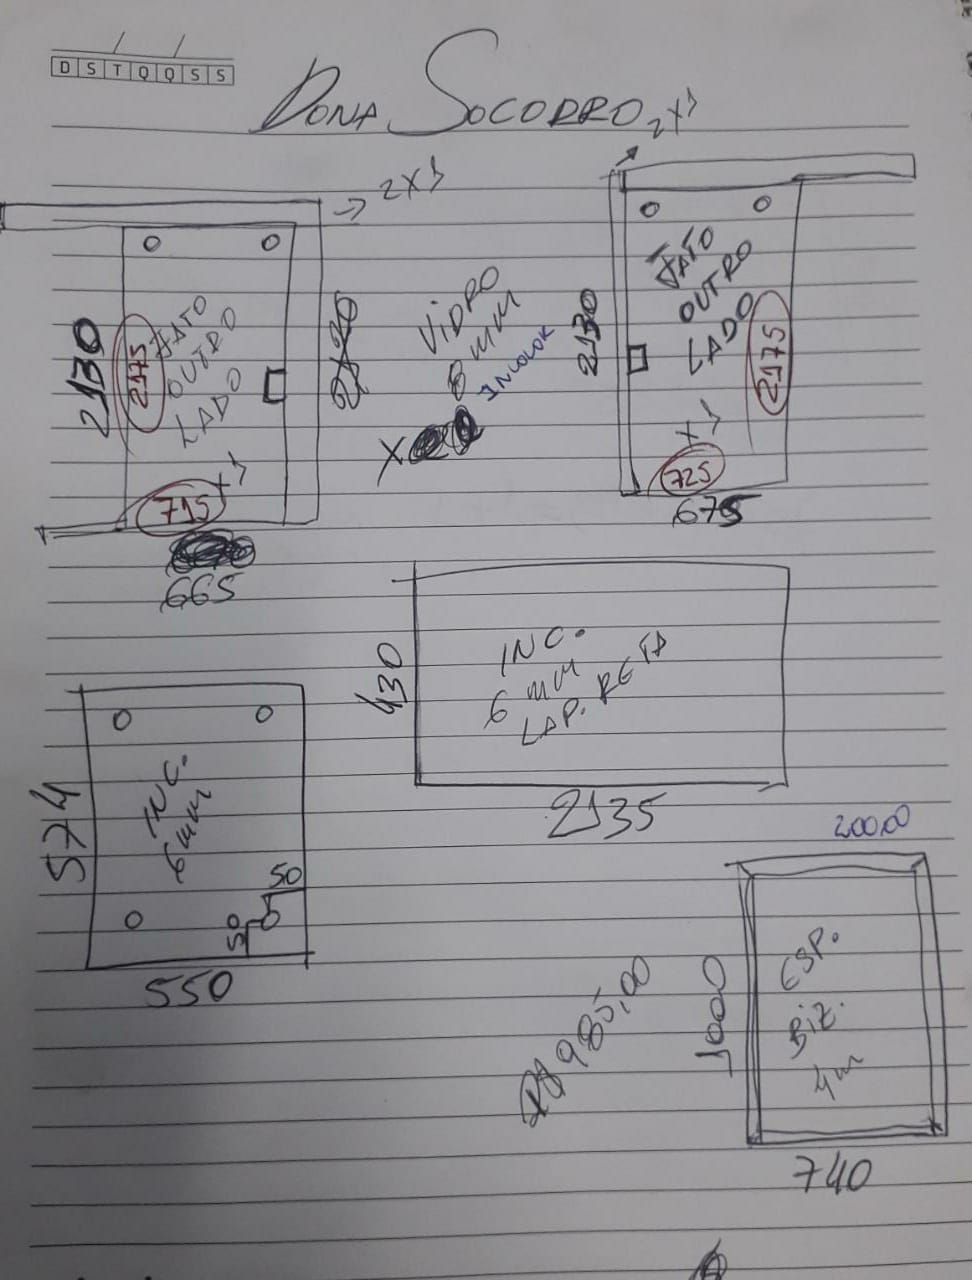 D S T Q Q S S
DONA SOCORRO
2X1
2X1
2130
2175
JATO
OUTRO
LADO
X1
715
665
VIDRO
8 MM
INCOLOR
2130
JATO
OUTRO
LADO
2175
X1
725
675
430
INC.
6 MM
LAP. RETA
2135
574
INC.
6 mm
50
50
550
R$ 985,00
200,00
1000
ESP.
BIZ.
4m
740